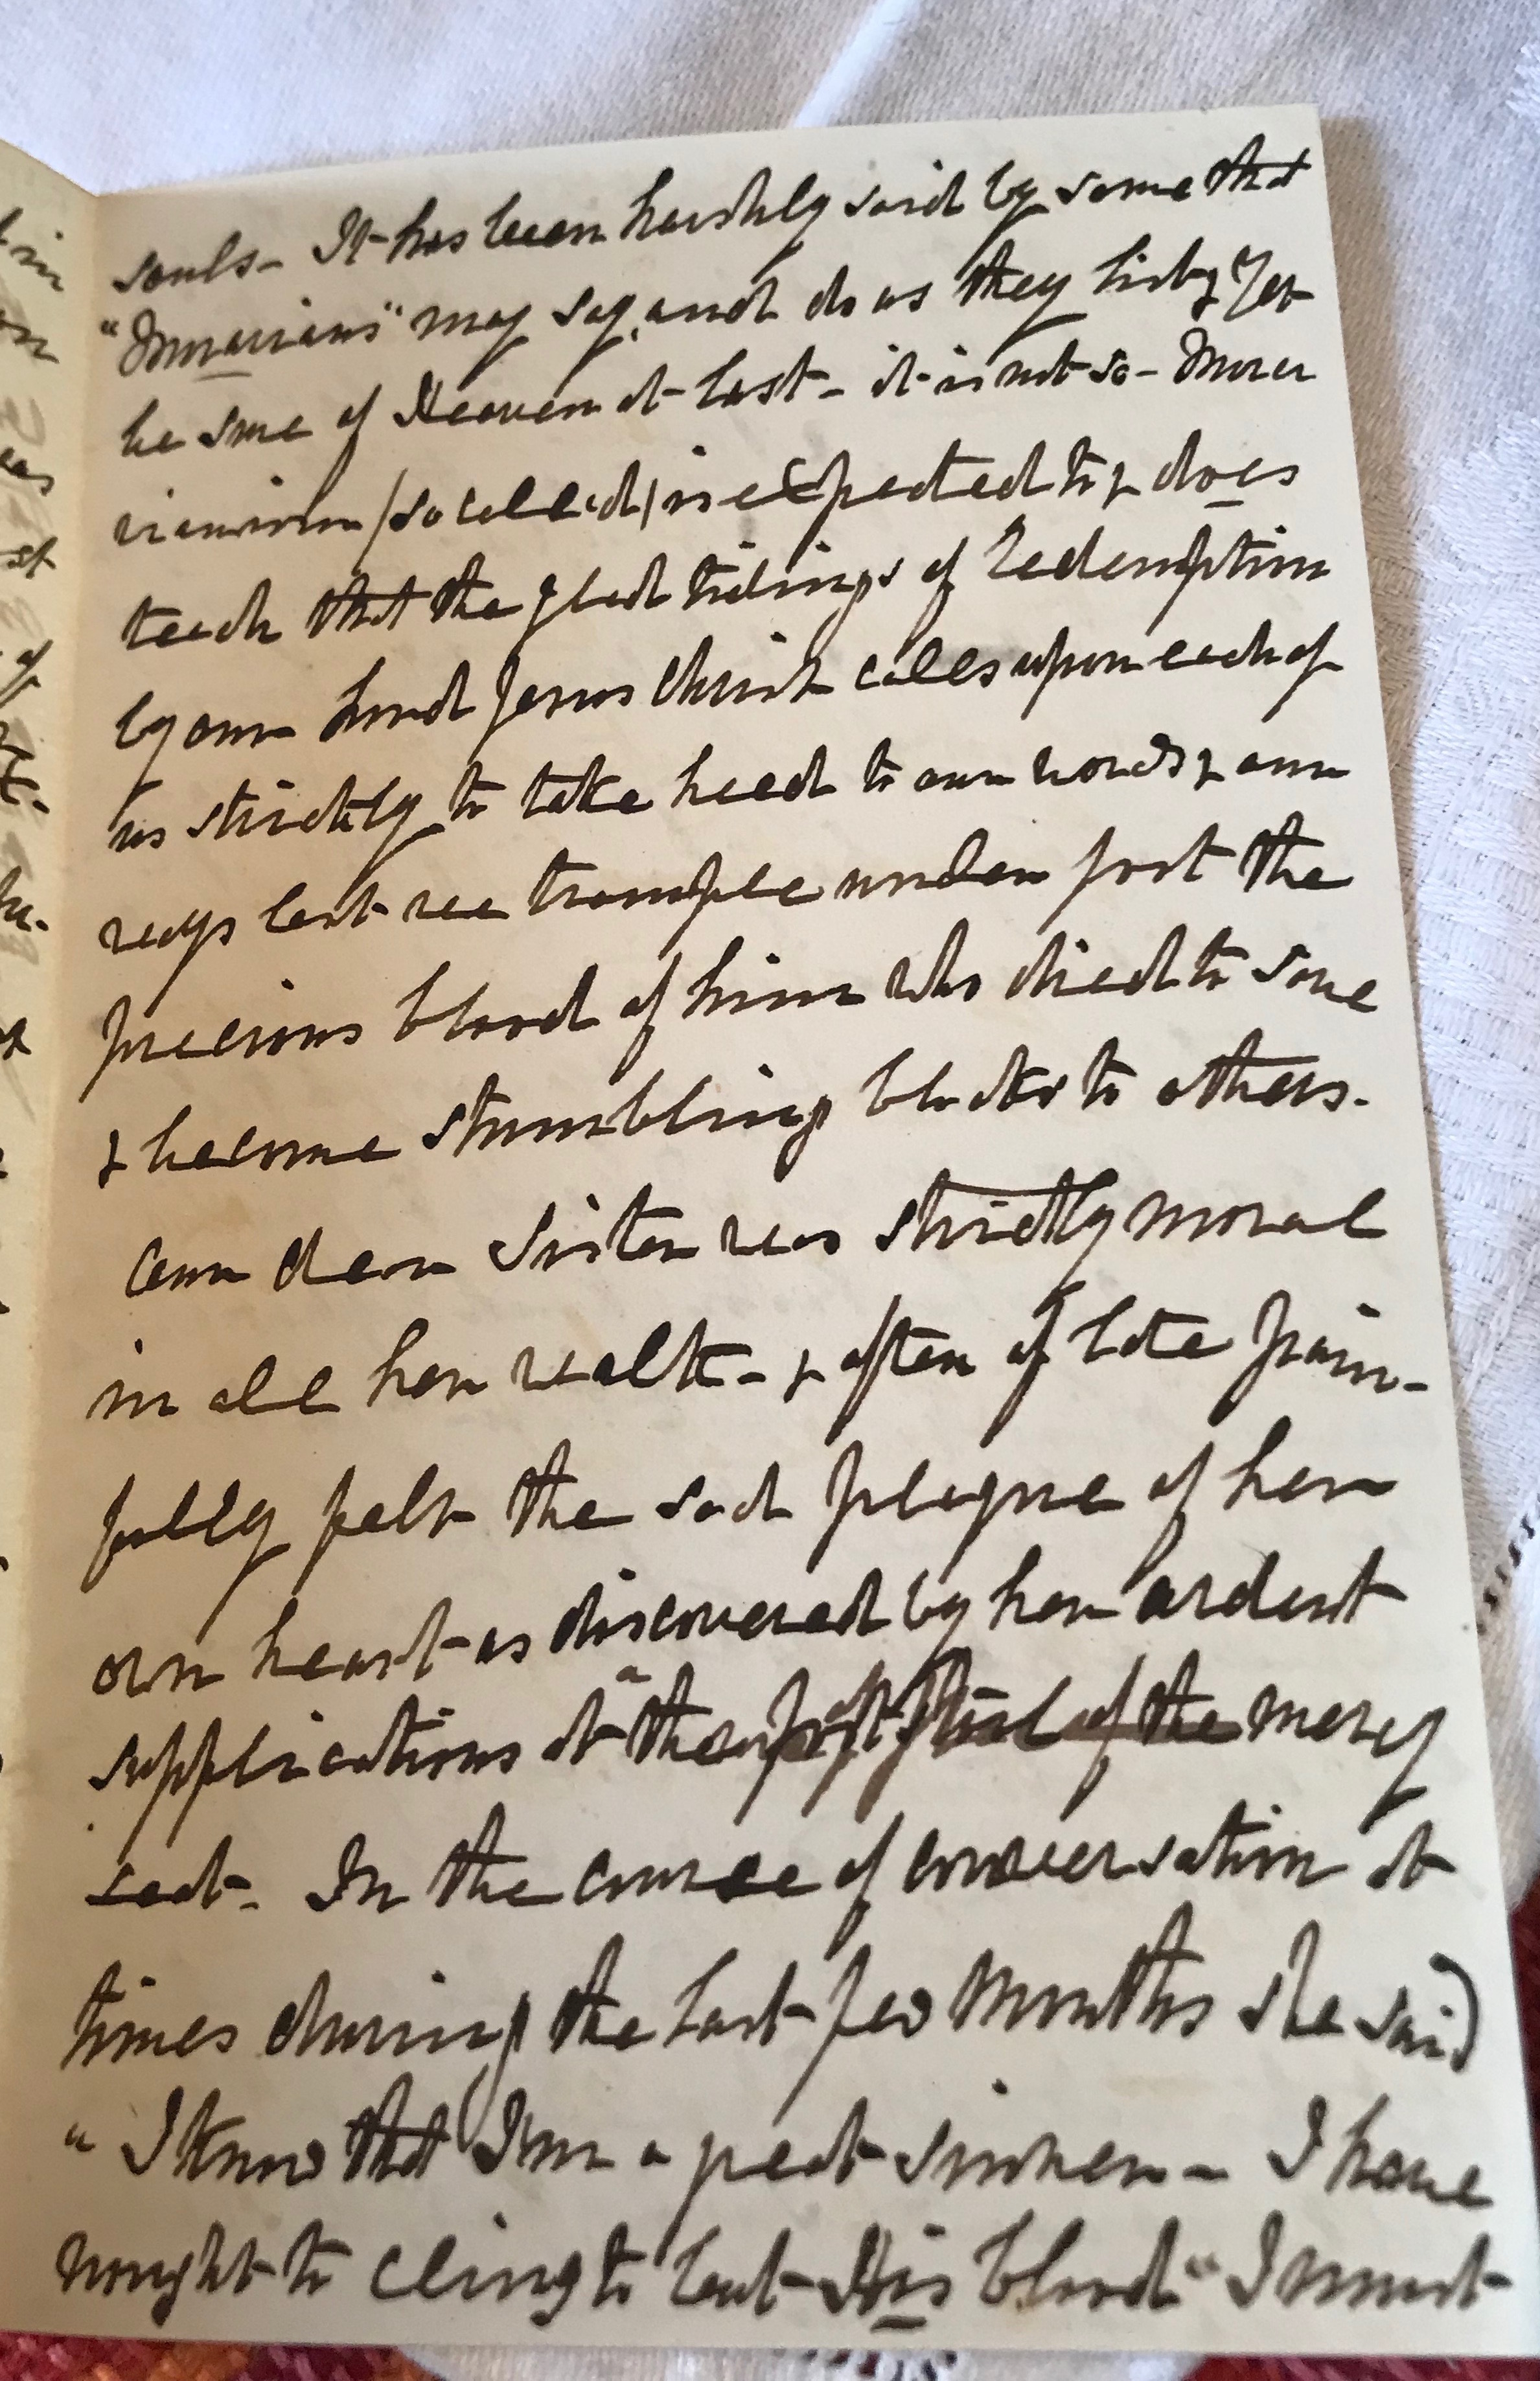 souls - It has been harshly said by some that
"Moravians" may say, and do as they list, & yet
be sure of Heaven at last - it is not so - Mora
vianism (so called) is expected to, & does
teach that the glad tidings of redemption
by our Lord Jesus Christ calls upon each of
us strictly to take heed to our words & our
ways lest we trample under foot the
precious blood of him who died to save
& become stumbling blocks to others.
Our dear Sister was strictly moral
in all her walk - & often of late pain-
fully felt the sad plague of her
own heart as discovered by her ardent
supplications at "the footstool of the mercy
seat - In the course of conversation at
times during the last few months she said
"I know that I'm a great sinner - I have
nought to cling to but His blood" I must